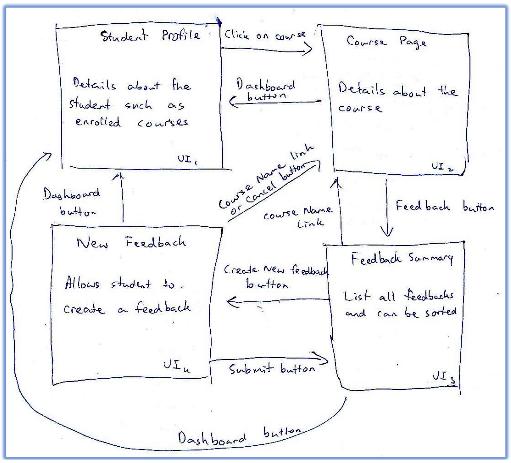 Student Profile
Details about the
student such as
enrolled courses
UI1
Click on course
Dashboard
button
Course Page
Details about the
course
UI2
Dashboard
button
Course Name link
or Cancel button
course Name
Link
Feedback button
New Feedback
Allows student to
create a feedback
UI4
Create New feedback
button
Submit button
Feedback Summary
List all feedbacks
and can be sorted
UI3
Dashboard button